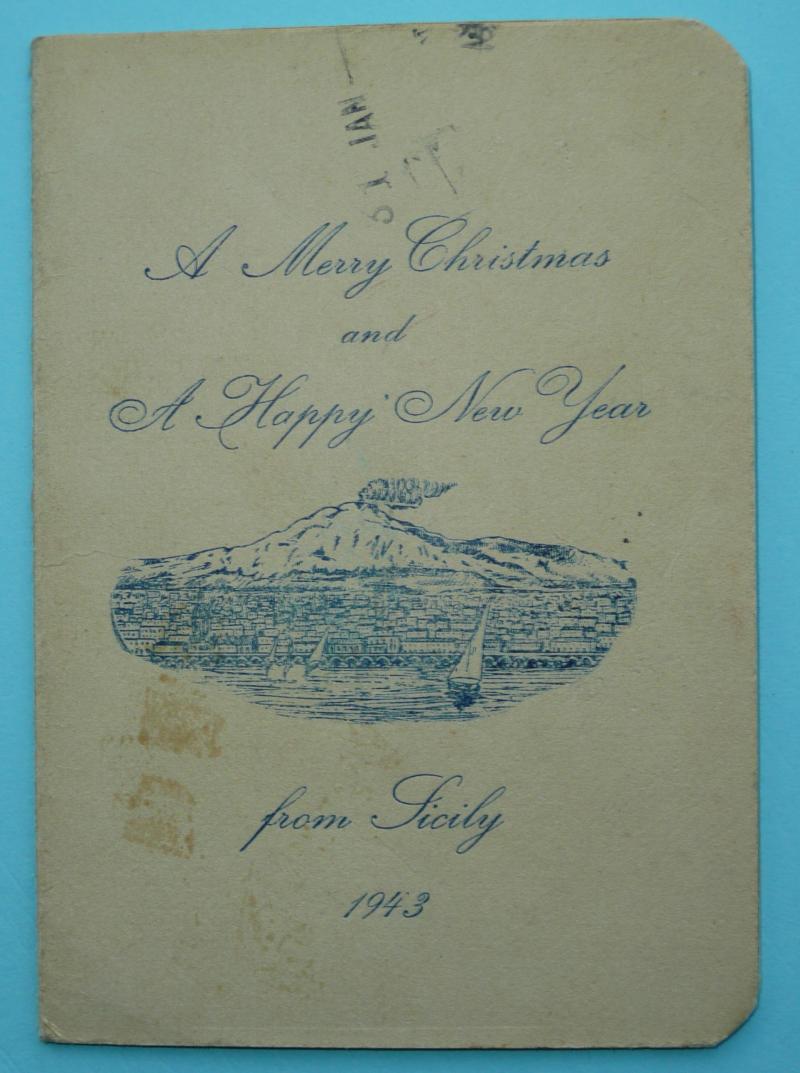 JAN
A Merry Christmas
and
A Happy New Year
from Sicily
1943